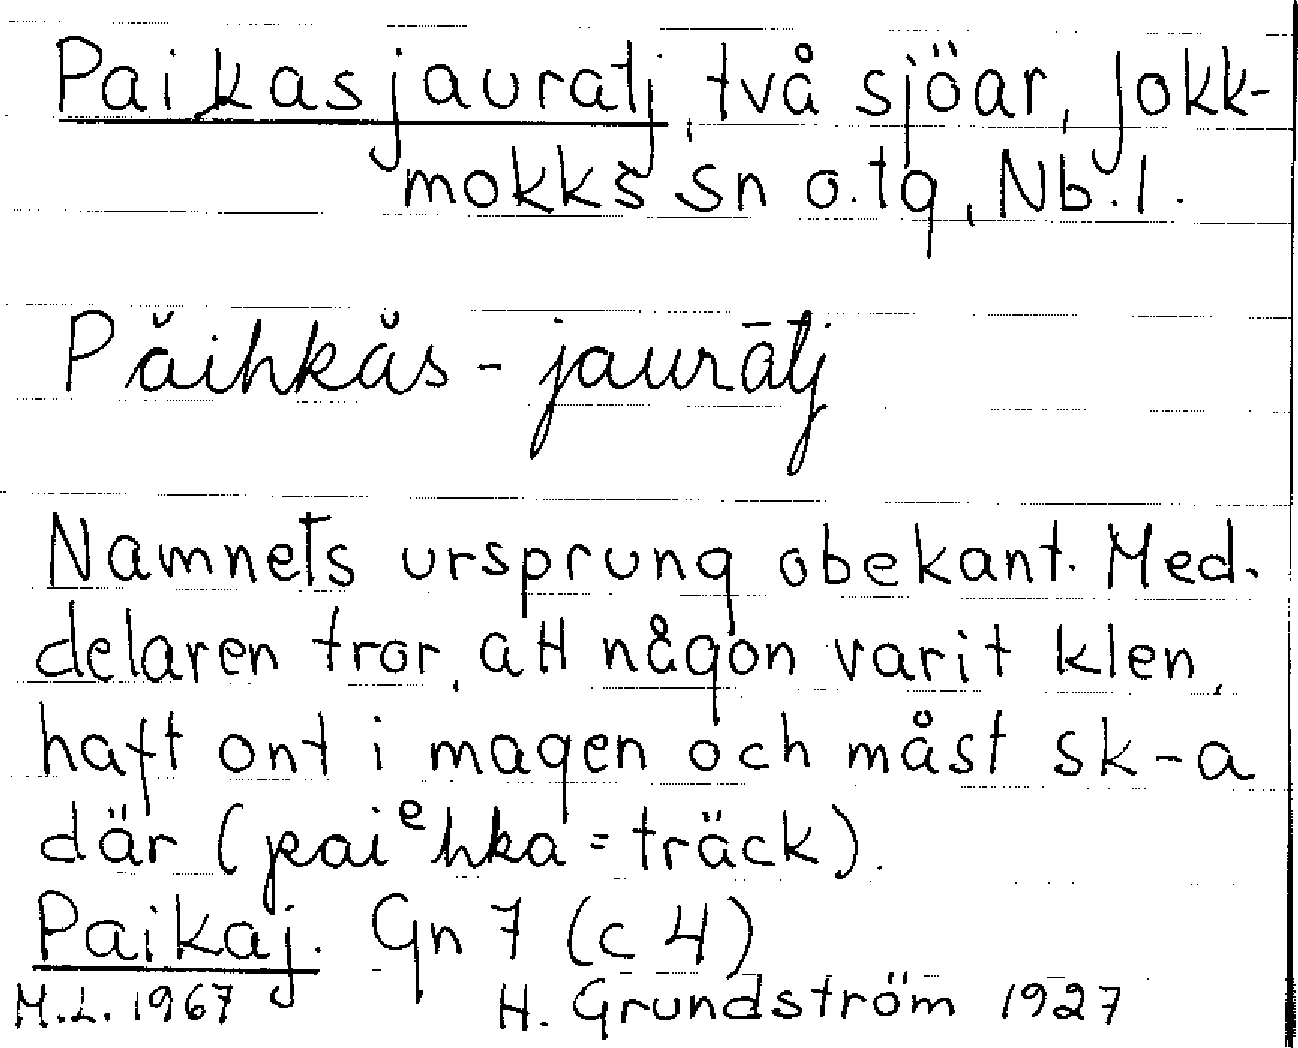 Paikasjauratj, två sjöar, Jokk-
mokks sn o. tg, Nb. l.
Păihkås - jaurātj
Namnets ursprung obekant. Med-
delaren tror, att någon varit klen,
haft ont i magen och måst sk-a
där (paiᵉhka = träck).
Paikaj. Gn 7 (c 4)
M.L. 1967 H. Grundström 1927